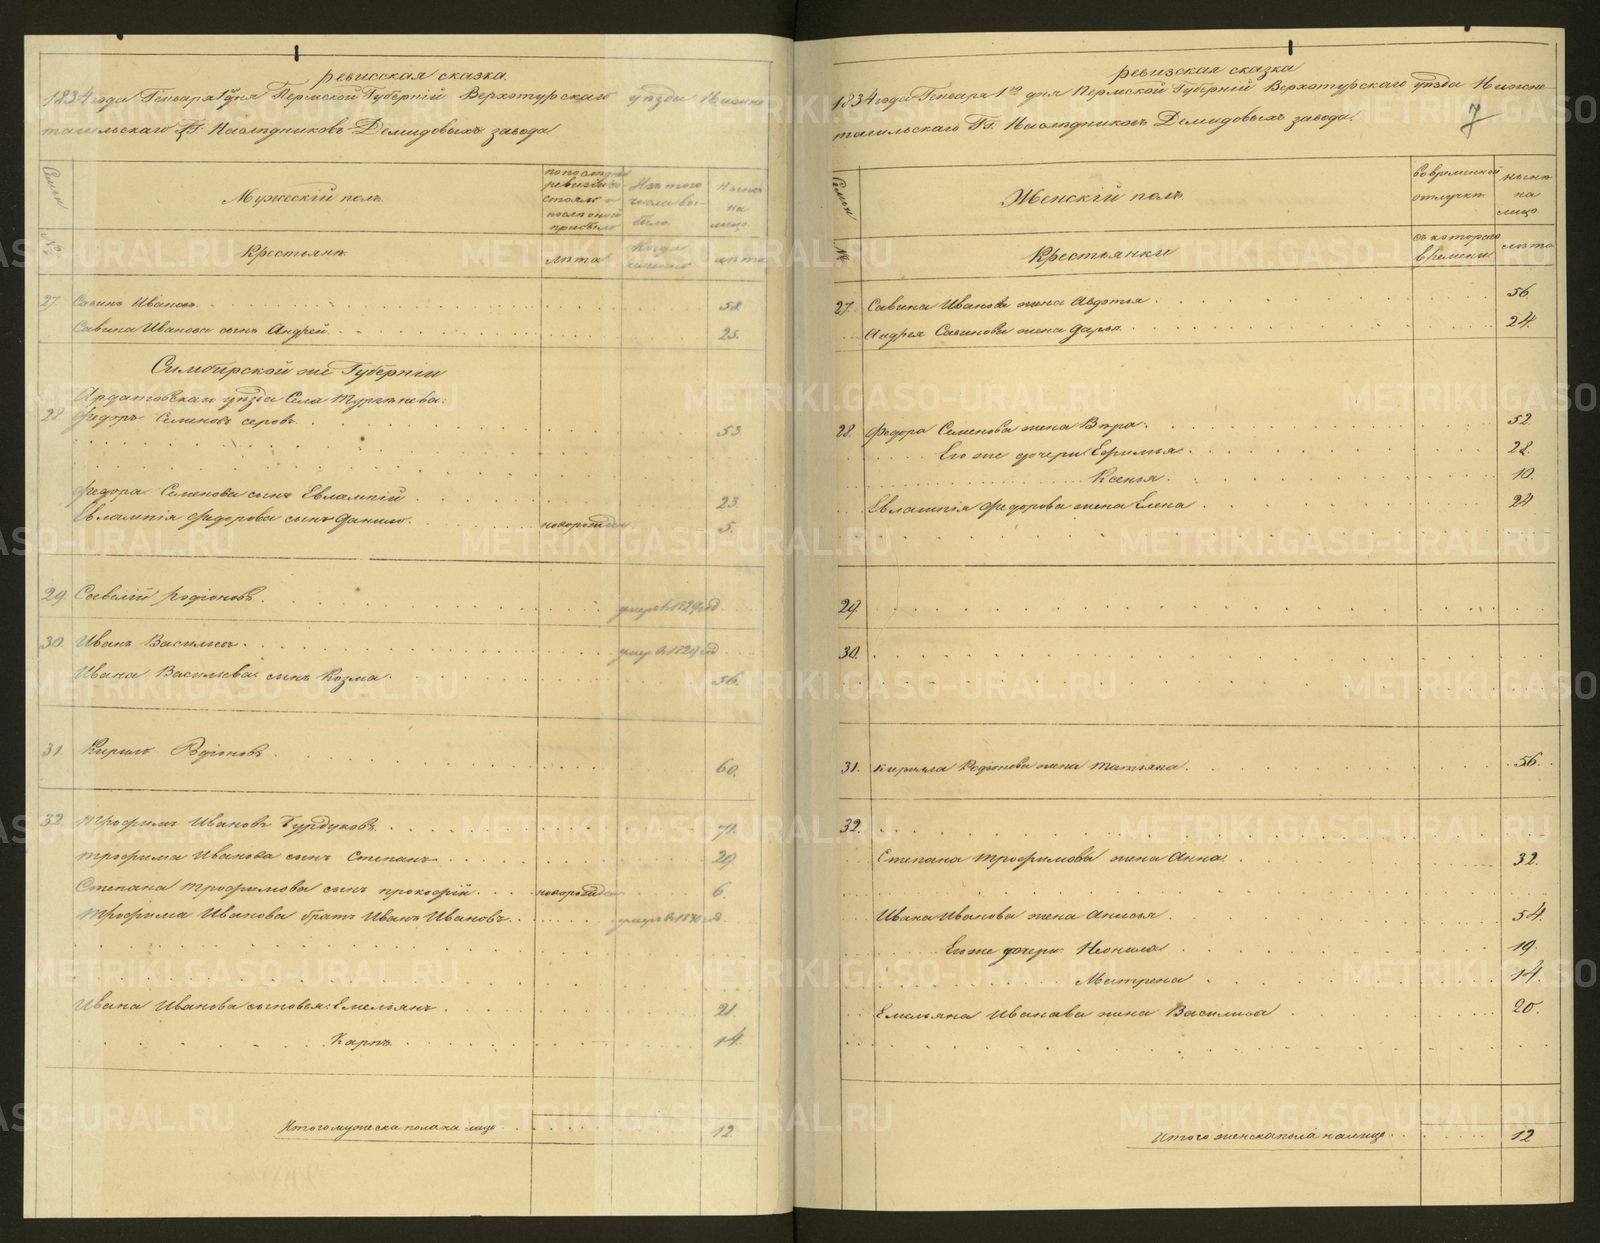 ревизская сказка
1834 года Генваря 1 дня Пермской Губерніи Верхотурскаго уѣзда Нижне
тагильскаго Гг. Наслѣдниковъ Демидовыхъ завода
Семьи
№
Мужескій полъ.
по послѣдней ревизіи состояло и послѣ оной прибыло
Изъ того числа выбыло
Нынѣ на лицо
Крестьяне
лѣта
Когда именно
лѣта
27. Савинъ Ивановъ. 58.
Савина Иванова сынъ Андрей. 25.
Симбирской же Губерніи
Ардатовскаго уѣзда Села Тургенева:
28 Федоръ Семеновъ серовъ. 53.
Федора Семенова сынъ Евлампій 23
Евлампія Федорова сынъ Данило. новорожден 5.
29. Савелій Родіоновъ. умеръ в 1829 год
30. Иванъ Васильевъ. умеръ в 1829 год
Ивана Васильева сынъ Козма. 56.
31. Кирило Родіоновъ. 60.
32. Трофимъ Ивановъ Бурдуковъ. 71.
Трофима Иванова сынъ Степанъ. 29.
Степана Трофимова сынъ прокофій. новорожден 6.
Трофима Иванова братъ Иванъ Ивановъ. умеръ в 1830 год
Ивана Иванова сыновья: Емельянъ. 21.
Карпъ. 14.
Итого мужеска пола на лицо 12
ревизская сказка
1834 года Генваря 1го дня Пермской Губерніи Верхотурскаго уѣзда Нижне
тагильскаго Гг. Наслѣдниковъ Демидовыхъ завода.
7
Семьи
№
Женскій полъ.
Во временной отлучкѣ
нынѣ на лицо
Крестьянки
съ котораго времени
лѣта
27. Савина Иванова жена Авдотья. 56.
Андрея Савинова жена Дарья. 24.
28. Федора Семенова жена Вѣра. 52.
Его же дочери: Ефимья. 28.
Ксенья. 10.
Евлампія Федорова жена Елена 24
29.
30.
31. Кирилла Родіонова жена Татьяна. 56.
32.
Степана Трофимова жена Анна. 32.
Ивана Иванова жена Анисья. 54.
Его же дочери: Неонила 19.
Матрена 14.
Емельяна Иванова жена Василиса 20.
Итого женска пола налицо 12
METRIKI.GASO-URAL.RU